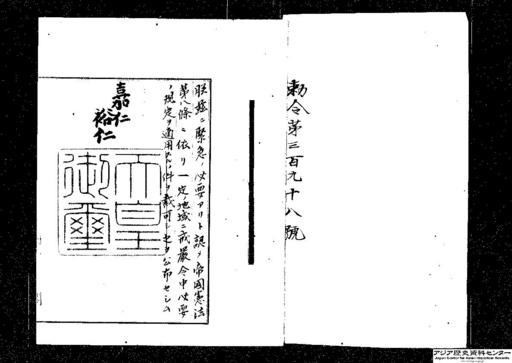 勅令第三百九十八號
朕茲ニ緊急ノ必要アリト認メ帝國憲法
第八條ニ依リ一定ノ地域ニ戒嚴令中必要
ノ規定ヲ適用スルノ件ヲ裁可シ之ヲ公布セシム
嘉仁
裕仁
天皇
御璽
アジア歴史資料センター
Japan Center for Asian Historical Records